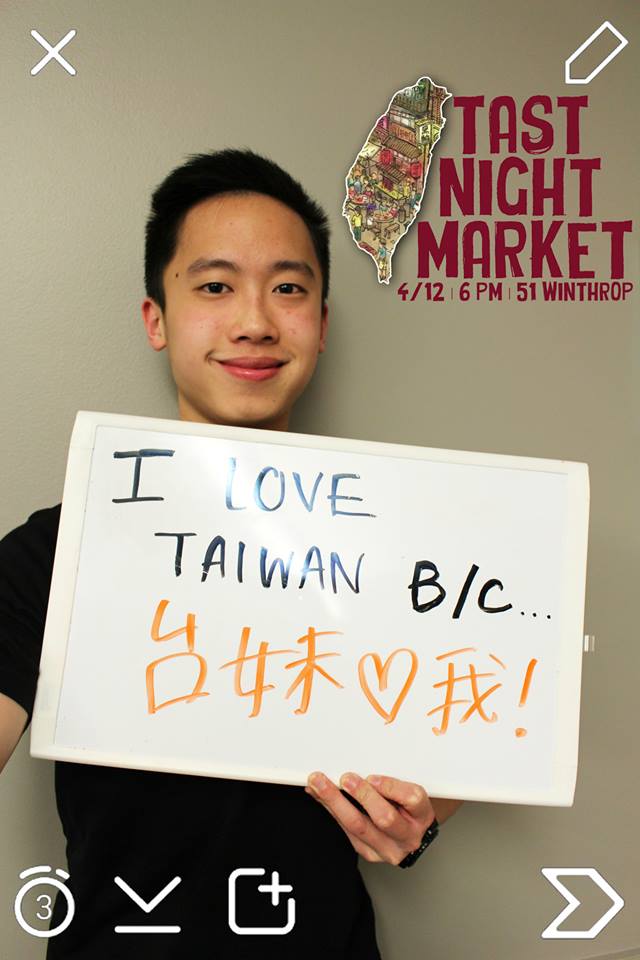 TAST
NIGHT
MARKET
4/12 | 6 PM | 51 WINTHROP
I LOVE
TAIWAN B/C...
台妹♡我!
3